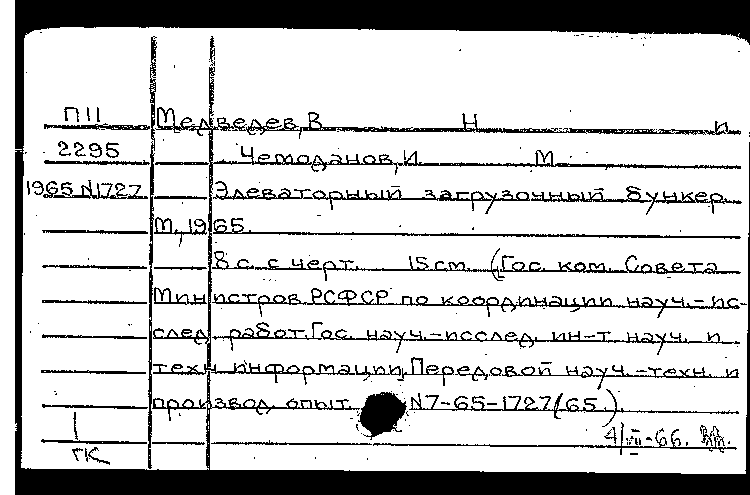 П11 Медведев, В Н и
2295 Чемоданов, И М.
1965 N1727 Элеваторный загрузочный бункер.
М., 1965.
8 с. с черт. 15 см. (Гос. ком. Совета
Министров РСФСР по координации науч.-ис-
след. работ. Гос. науч.-исслед. ин-т науч. и
техн. информации. Передовой науч.-техн. и
производ. опыт. N7-65-1727(65).
4/II-66.
ГК